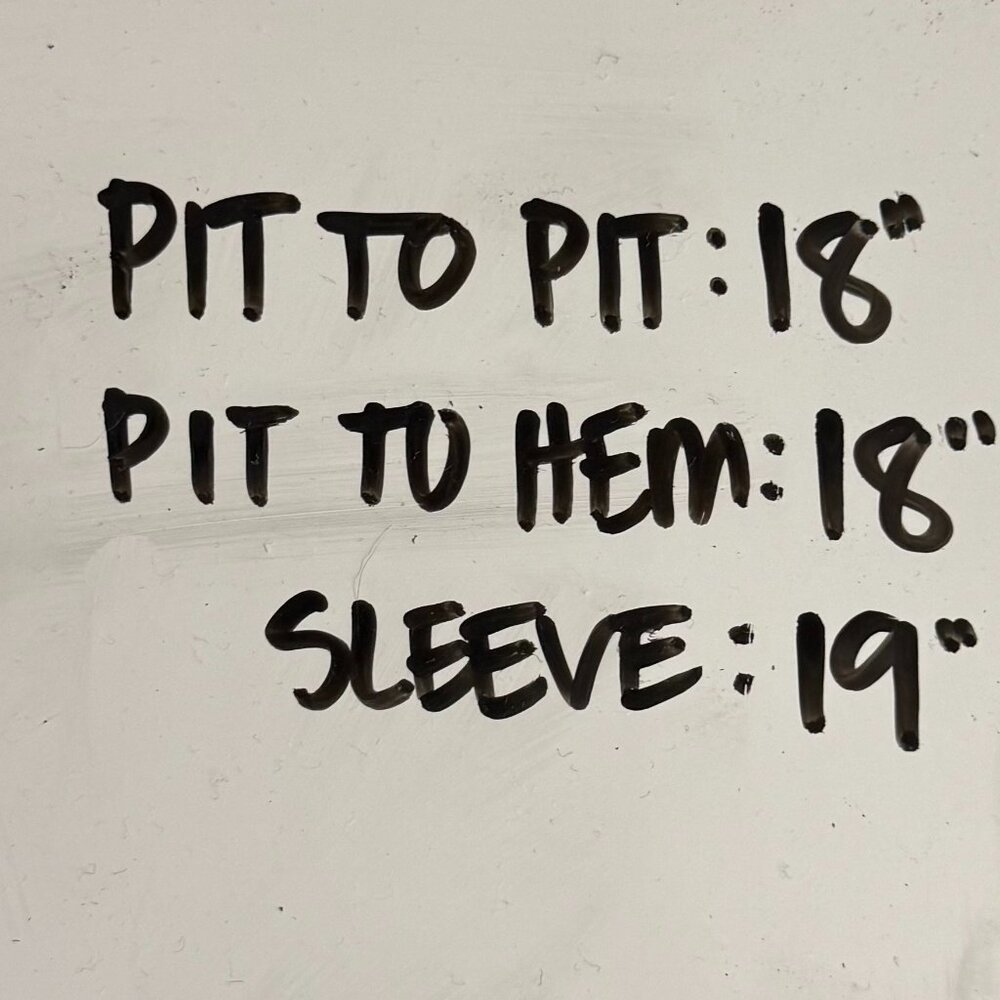 PIT TO PIT: 18"
PIT TO HEM: 18"
SLEEVE: 19"